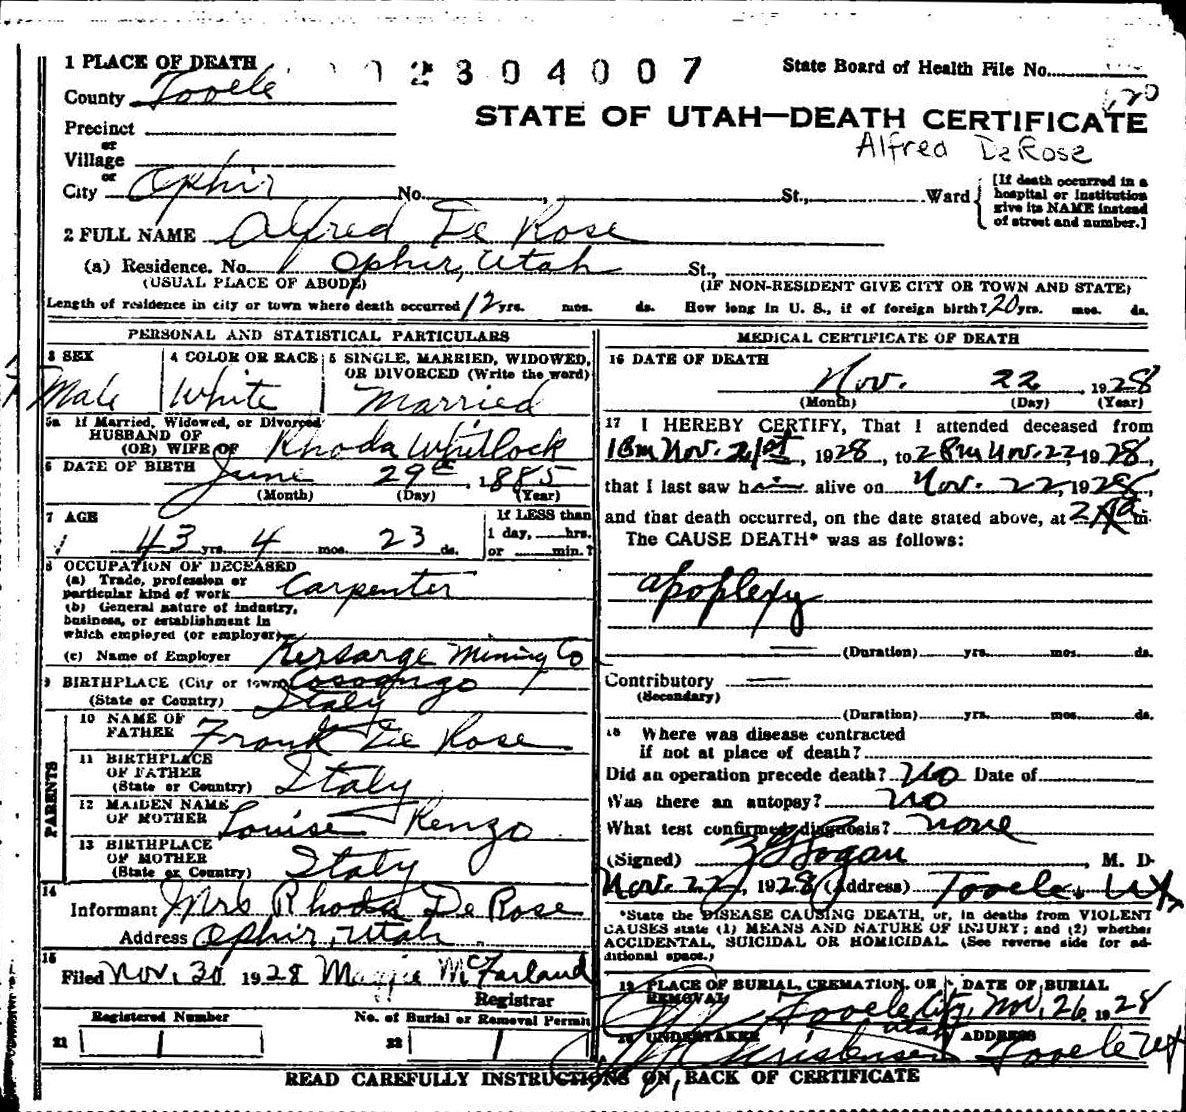 1 PLACE OF DEATH
2304007
State Board of Health File No.
County Tooele
STATE OF UTAH—DEATH CERTIFICATE
Alfred DeRose
Precinct
or
Village
or
City Ophir No. , St., Ward
[If death occurred in a hospital or institution give its NAME instead of street and number.]
2 FULL NAME Alfred De Rose
(a) Residence. No. Ophir, Utah St.,
(USUAL PLACE OF ABODE) (IF NON-RESIDENT GIVE CITY OR TOWN AND STATE)
Length of residence in city or town where death occurred 12 yrs. mos. ds. How long in U. S., if of foreign birth? 20 yrs. mos. ds.
PERSONAL AND STATISTICAL PARTICULARS
3 SEX 4 COLOR OR RACE 5 SINGLE, MARRIED, WIDOWED, OR DIVORCED (Write the word)
Male White Married
5a If Married, Widowed, or Divorced
HUSBAND OF
(OR) WIFE OF Rhoda Whitlock
6 DATE OF BIRTH June 29th, 1885
(Month) (Day) (Year)
7 AGE If LESS than
1 day, hrs.
43 yrs. 4 mos. 23 ds. or min.?
8 OCCUPATION OF DECEASED
(a) Trade, profession or
particular kind of work Carpenter
(b) General nature of industry,
business, or establishment in
which employed (or employer)
(c) Name of Employer Kersarge Mining Co
9 BIRTHPLACE (City or town)
(State or Country) Italy
PARENTS
10 NAME OF
FATHER Frank De Rose
11 BIRTHPLACE
OF FATHER
(State or Country) Italy
12 MAIDEN NAME
OF MOTHER Louise Renzo
13 BIRTHPLACE
OF MOTHER
(State or Country) Italy
14
Informant Mrs Rhoda De Rose
Address Ophir, Utah
15
Filed Nov. 30 1928 Maggie McFarland
Registrar
Registered Number No. of Burial or Removal Permit
21 22
MEDICAL CERTIFICATE OF DEATH
16 DATE OF DEATH
Nov. 22, 1928
(Month) (Day) (Year)
17 I HEREBY CERTIFY, That I attended deceased from
Nov. 21st, 1928, to Nov. 22, 1928,
that I last saw him alive on Nov. 22, 1928,
and that death occurred, on the date stated above, at 2 m.
The CAUSE DEATH* was as follows:
apoplexy
(Duration) yrs. mos. ds.
Contributory
(Secondary)
(Duration) yrs. mos. ds.
18 Where was disease contracted
if not at place of death?
Did an operation precede death? no Date of
Was there an autopsy? no
What test confirmed diagnosis? none
(Signed) , M. D.
Nov. 22, 1928 (Address) Tooele, Ut
*State the DISEASE CAUSING DEATH, or, in deaths from VIOLENT
CAUSES state (1) MEANS AND NATURE OF INJURY; and (2) whether
ACCIDENTAL, SUICIDAL OR HOMICIDAL. (See reverse side for ad-
ditional space.)
19 PLACE OF BURIAL, CREMATION, OR REMOVAL DATE OF BURIAL
Tooele City, Utah Nov. 26 1928
20 UNDERTAKER ADDRESS
Christensen Tooele Ut
READ CAREFULLY INSTRUCTIONS ON BACK OF CERTIFICATE